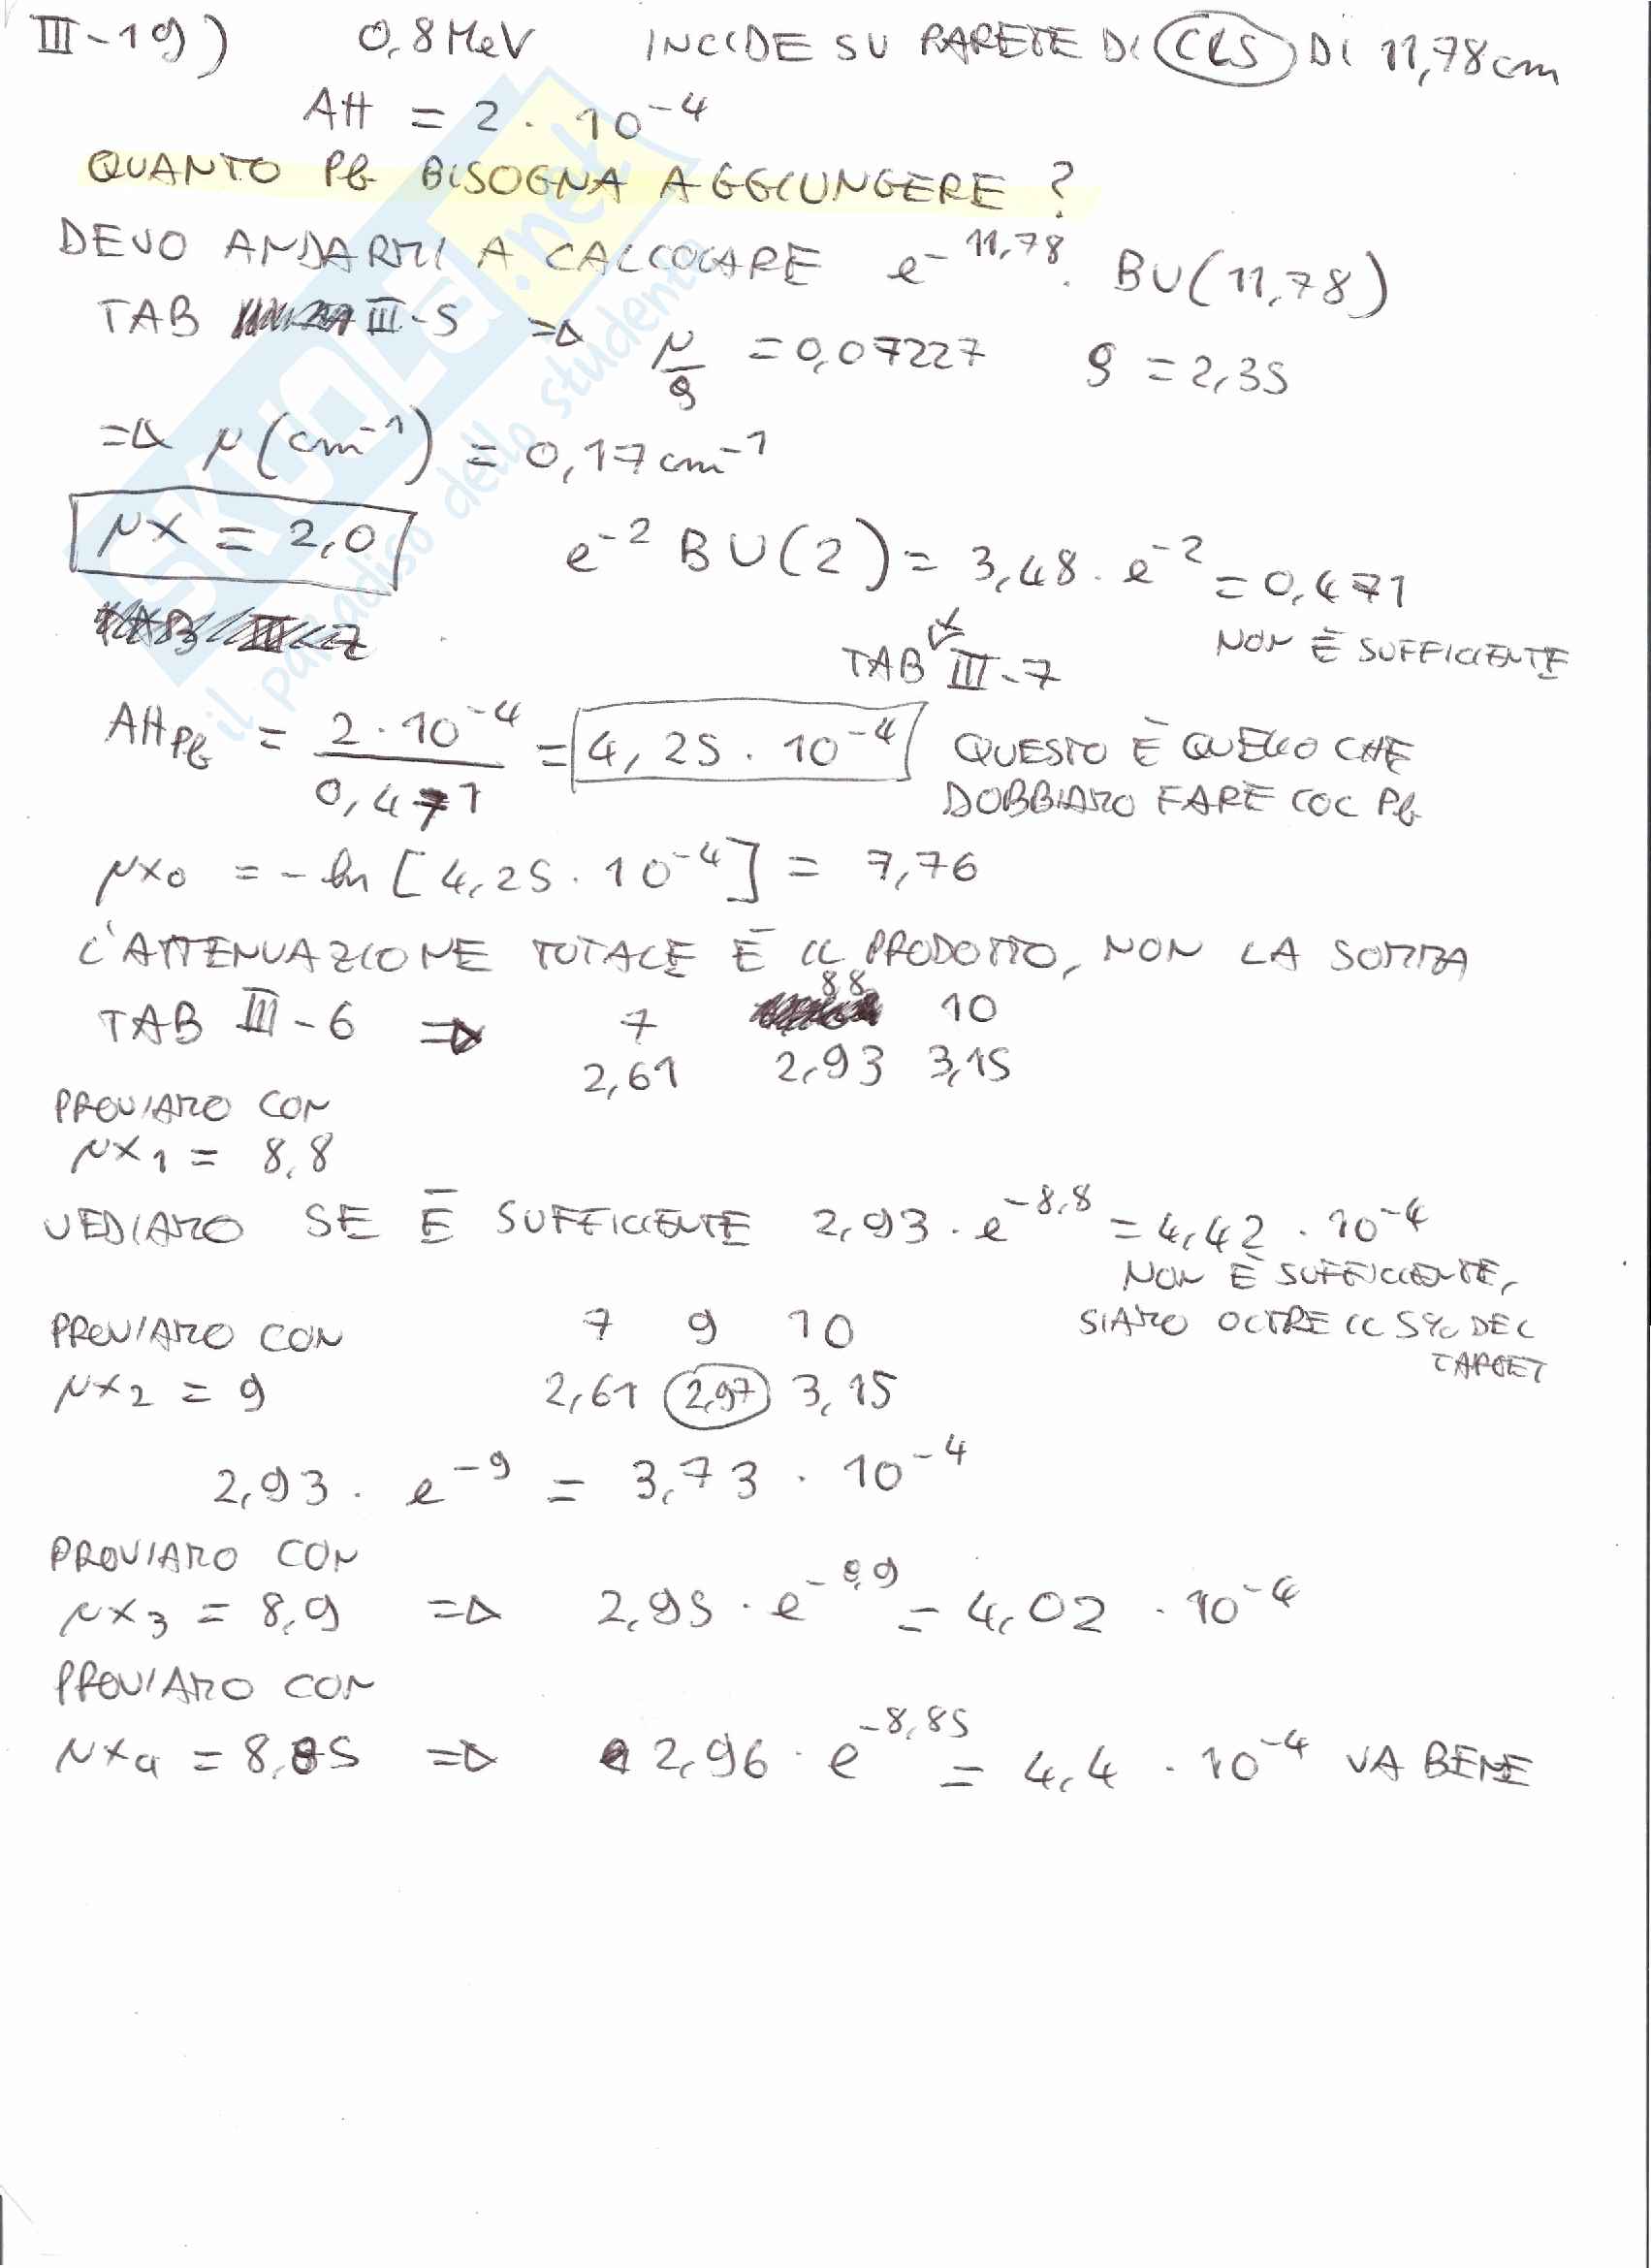 III-19) 0,8 MeV INCIDE SU PARETE DI CLS DI 11,78 cm
Att = 2 · 10^-4
QUANTO Pb BISOGNA AGGIUNGERE ?
DEVO ANDARMI A CALCOLARE e^-11,78 · BU(11,78)
TAB III-5 => μ/ρ = 0,07227 ρ = 2,35
=> μ (cm^-1) = 0,17 cm^-1
μx = 2,0 e^-2 BU(2) = 3,48 · e^-2 = 0,471
NON È SUFFICIENTE
TAB III-7
Att Pb = 2 · 10^-4 / 0,471 = 4,25 · 10^-4 QUESTO È QUELLO CHE
DOBBIAMO FARE COL Pb
μx0 = - ln [4,25 · 10^-4] = 7,76
L'ATTENUAZIONE TOTALE È IL PRODOTTO, NON LA SOMMA
TAB III-6 => 7 8,8 10
2,61 2,93 3,15
PROVIAMO CON
μx1 = 8,8
VEDIAMO SE È SUFFICIENTE 2,93 · e^-8,8 = 4,42 · 10^-4
NON È SUFFICIENTE,
SIAMO OLTRE IL 5% DEL
TARGET
PROVIAMO CON 7 9 10
μx2 = 9 2,61 2,97 3,15
2,93 · e^-9 = 3,73 · 10^-4
PROVIAMO CON
μx3 = 8,9 => 2,95 · e^-8,9 = 4,02 · 10^-4
PROVIAMO CON
μx4 = 8,85 => 2,96 · e^-8,85 = 4,4 · 10^-4 VA BENE
SKUOLA.net
il paradiso dello studente